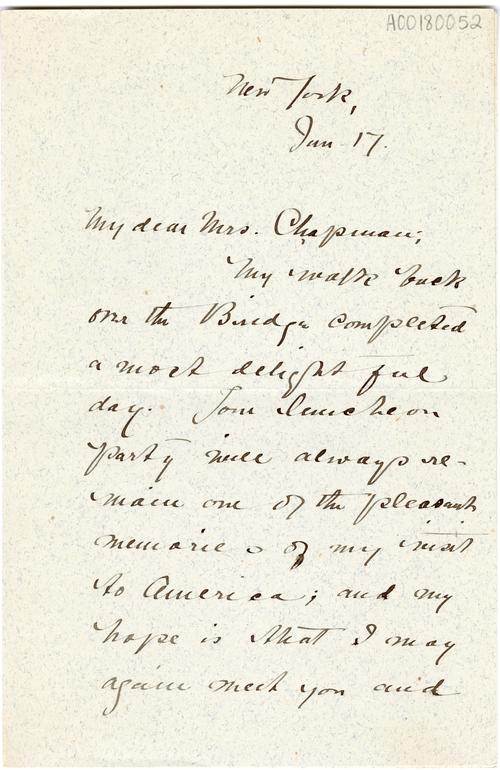 A00180052
New York,
Jan 17.
My dear Mrs. Chapman;
My walk back
over the Bridge completed
a most delightful
day. Your luncheon
party will always re-
main one of the pleasant
memories of my visit
to America; and my
hope is that I may
again meet you and